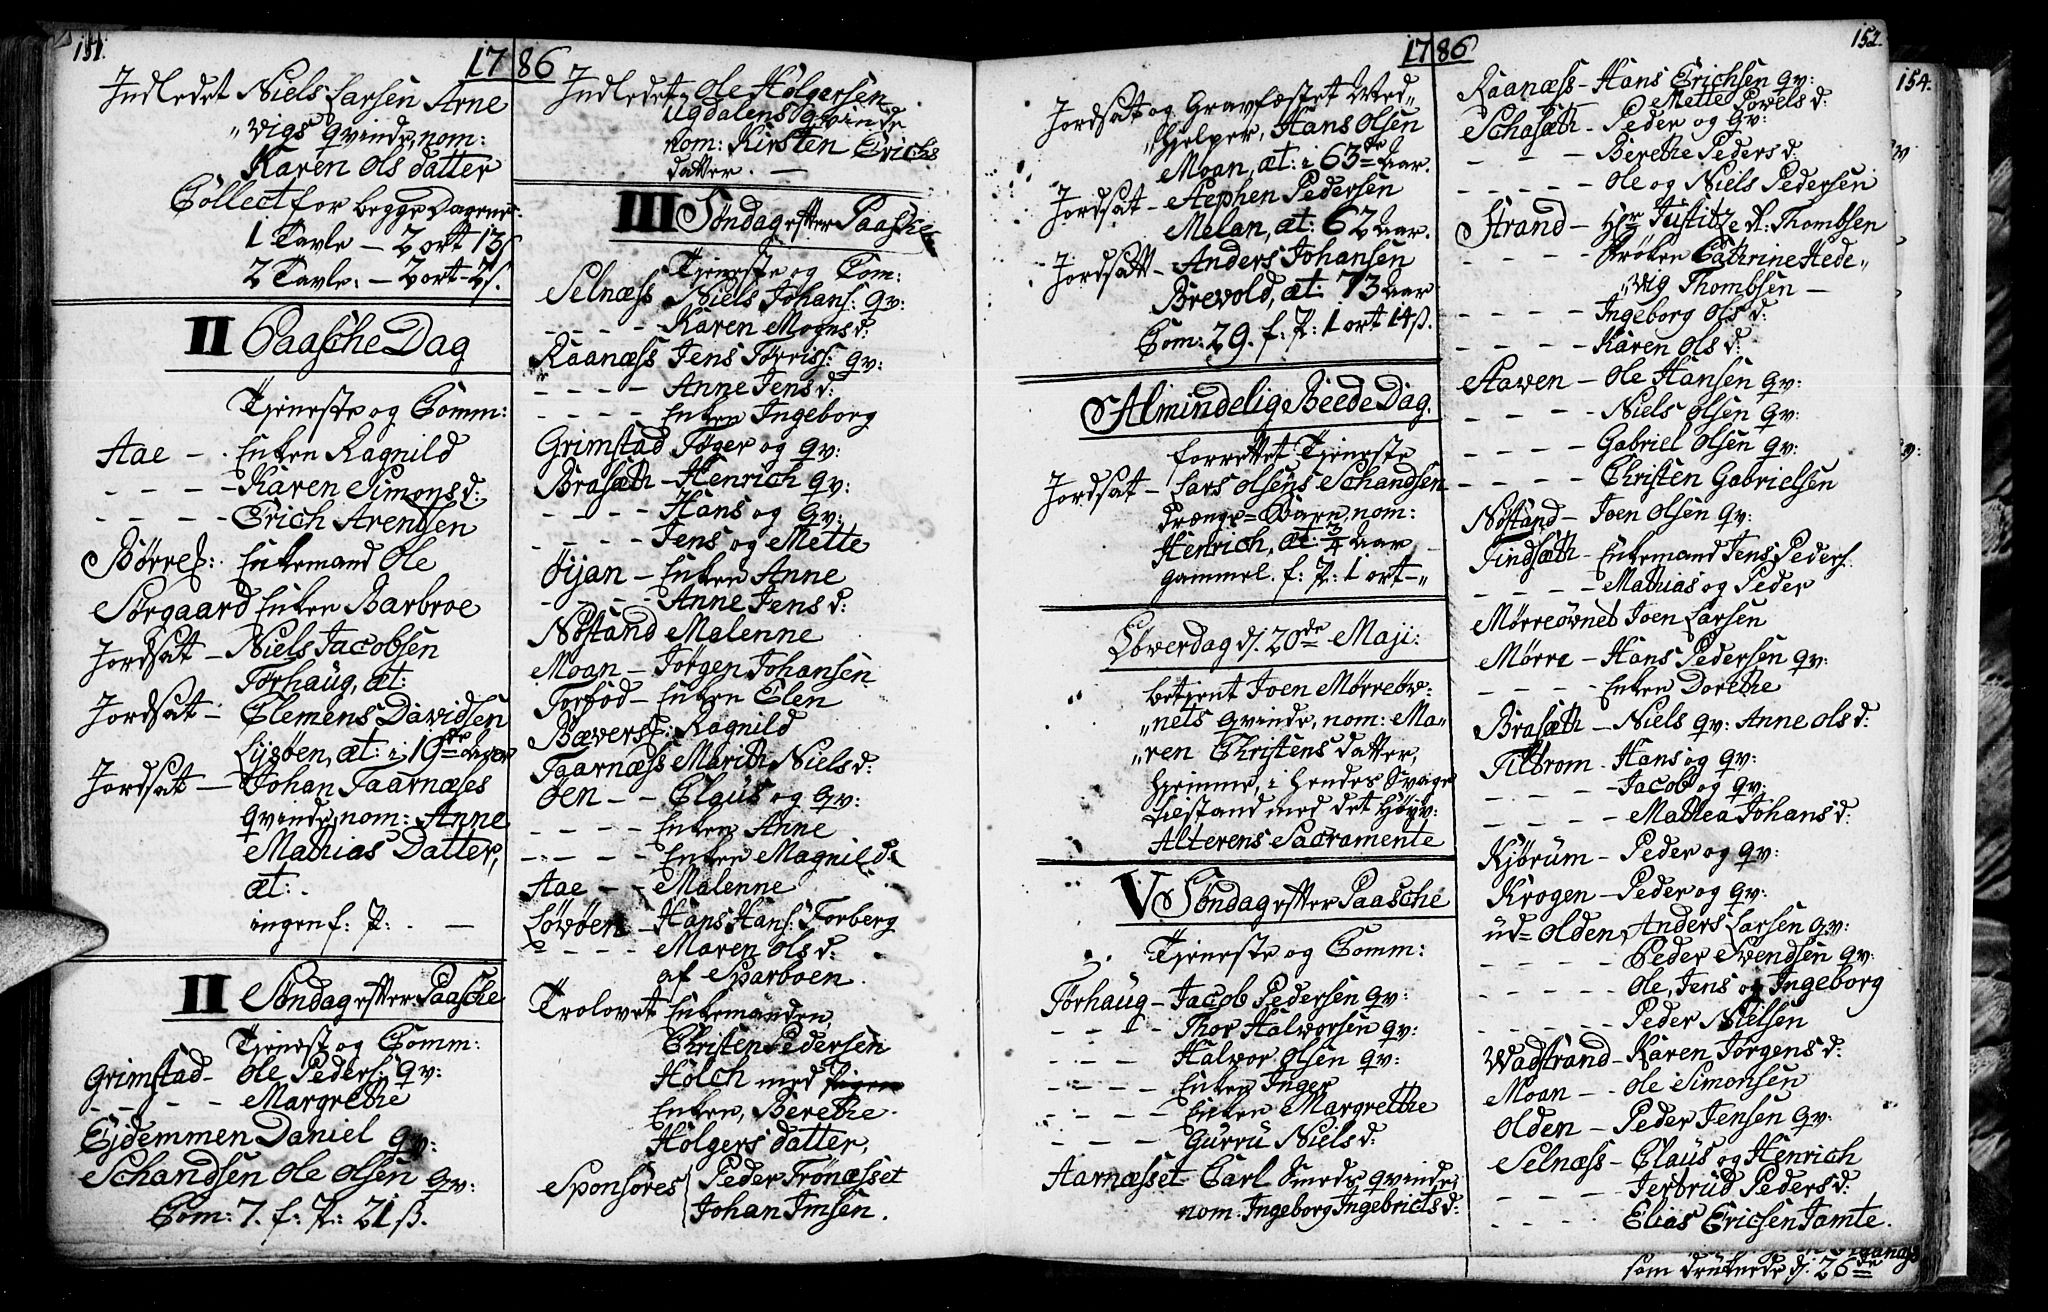 151.
1786
Indledet Niels Larsen Arne
"vigs qvinde, nom:
Karen Ols datter
Collect for begge Dagene.
1 Tavle - 2 ort 13ſ
2 Tavle: - 2 ort - 2ſ.
II Paasche Dag
Tieneste og Comm:
Aae - Enken Ragnild
- - - - Karen Simons d:
- - - - Erich Arentsen
Børres: Enkemand Ole
Sørgaard Enken Barbroe
Jordsat - Niels Jacobsen
Tørhaug, æt:
Jordsat - Clemens Davidsen
Lysøen, æt: i 19de Aar
Jordsat - Johan Taarnæses
qvinde, nom: Anne
Mathias Datter,
æt: .
ingen f: P: . -
II Søndag efter Paasche
Tienest og Comm:
Grimstad - Ole Peders: qv:
- - - - Margrethe
Eidemmen Daniel qv:
Schandsen Ole Olsen qv:
Com: 7. f: P: 21 ß.
Indledet Ole Holgersen
Ugdalens qvinde
Nom: Kirsten Erichs
datter. -
III Søndag efter Paasche
Tieneste og Com:
Selnæss Niels Johans: qv:
- - - - Karen Mogns d:
Raanæss Jens Tørriss: qv:
- - - - Anne Jens d:
- - - - Enken Ingeborg
Grimstad Tøger og qv:
Brasæth - Henrich qv:
- - - - Hans og qv:
- - - - Jens og Mette
Øijan - Enken Anne
- - - - Anne Jens d:
Nøstand Malenne
Moan - Jørgen Johansen
Forfod - Enken Elen
Bævers: Ragnild
Taarnæss Marith Niels d:
Øen - - Claus og qv:
- - - - Enken Anne
- - - - Enken Magnild
Aae - - Malenne
Løvøen - Hans Hans: Forberg
- - - Maren Ols d:
af Sparboen.
Trolovet Enkemanden
Christen Pedersen
Holch med
Enken, Berethe
Holgers datter,
Sponsores Peder Trønæsset
Johan Imsen.
152.
1786
Jordsat og Gravfæstet Med"
"hielper, Hans Olsen
Moan, æt: i 63de Aar.
Jordsat - Stephen Pedersen
Melan, æt: 62 Aar.
Jordsatt - Anders Johansen
Brevold, æt: 73 Aar
Com: 29. f: P: 1 ort 14 ß.
Almindelig Beede Dag.
forrettet Tieneste
Jordsat - Lars Olsens Schandsen
Drænge-Barn, nom:
Henrich, æt: 3/4 Aar
gammel. f: P: 1 ort - "
Løverdag d. 20de Maji:
betient Joen Mørreøv-
"nets qvinde, nom: Ma-
"ren Christens datter,
hiemme, i hendes Svage
tilstand med det Høyv:
Alterens Sacramente
V Søndag efter Paasche
Tieneste og Comm:
Tørhaug - Jacob Pedersen qv:
- - - Thor Halvorsen qv:
- - - Halvor Olsen qv:
- - - - Enken Inger
- - - - Enken Margrethe
- - - Gurru Niels d:
Aarnæsset Carl Smeds qvinde,
nom. Ingeborg Ingebricts d:
Raanæss - Hans Erichsen qv:
Mette Povels d:
Schasæth - Peder og qv:
- - - Berethe Peders d:
- - - - - Ole og Niels Pedersen
Strand - Hr Justitze R: Thombsen
- - - - Frøken Cathrine Hede"
"vig Thombsen -
- - - - Ingeborg Ols d:
- - - - Karen Ols d:
Staven - Ole Hansen qv:
- - - Niels Olsen qv:
- - - - Gabriel Olsen qv:
- - - - Christen Gabrielsen
Nøstand - Joen Olsen qv:
Findsæth - Enkemand Jens Peders:
- - - - - Mathias og Peder
Mørreøvnet Joen Larsen
Mørre - Hans Pedersen qv:
- - - - Enken Dorethe
Brasæth - Niels qv: Anne Ols d:
Tiltrom - Hans og qv:
- - - - Jacob og qv:
- - - - - Mathea Johans d:
Kjørum - Peder og qv:
Krogen - Peder og qv:
Ud-Olden, Anders Larsen qv:
- - - - Peder Svendsen qv:
- - - - - Ole, Jens og Ingeborg
- - - - - Peder Nielsen
Wadstrand - Karen Jørgens d:
Moan - - Ole Simonsen
Olden - Peder Jensen qv:
Selnæss - Claus og Henrich
- - - Jertrud Peders d:
- - - - Elias Ericsen Jamte.
som drucnede d: 26de
154.